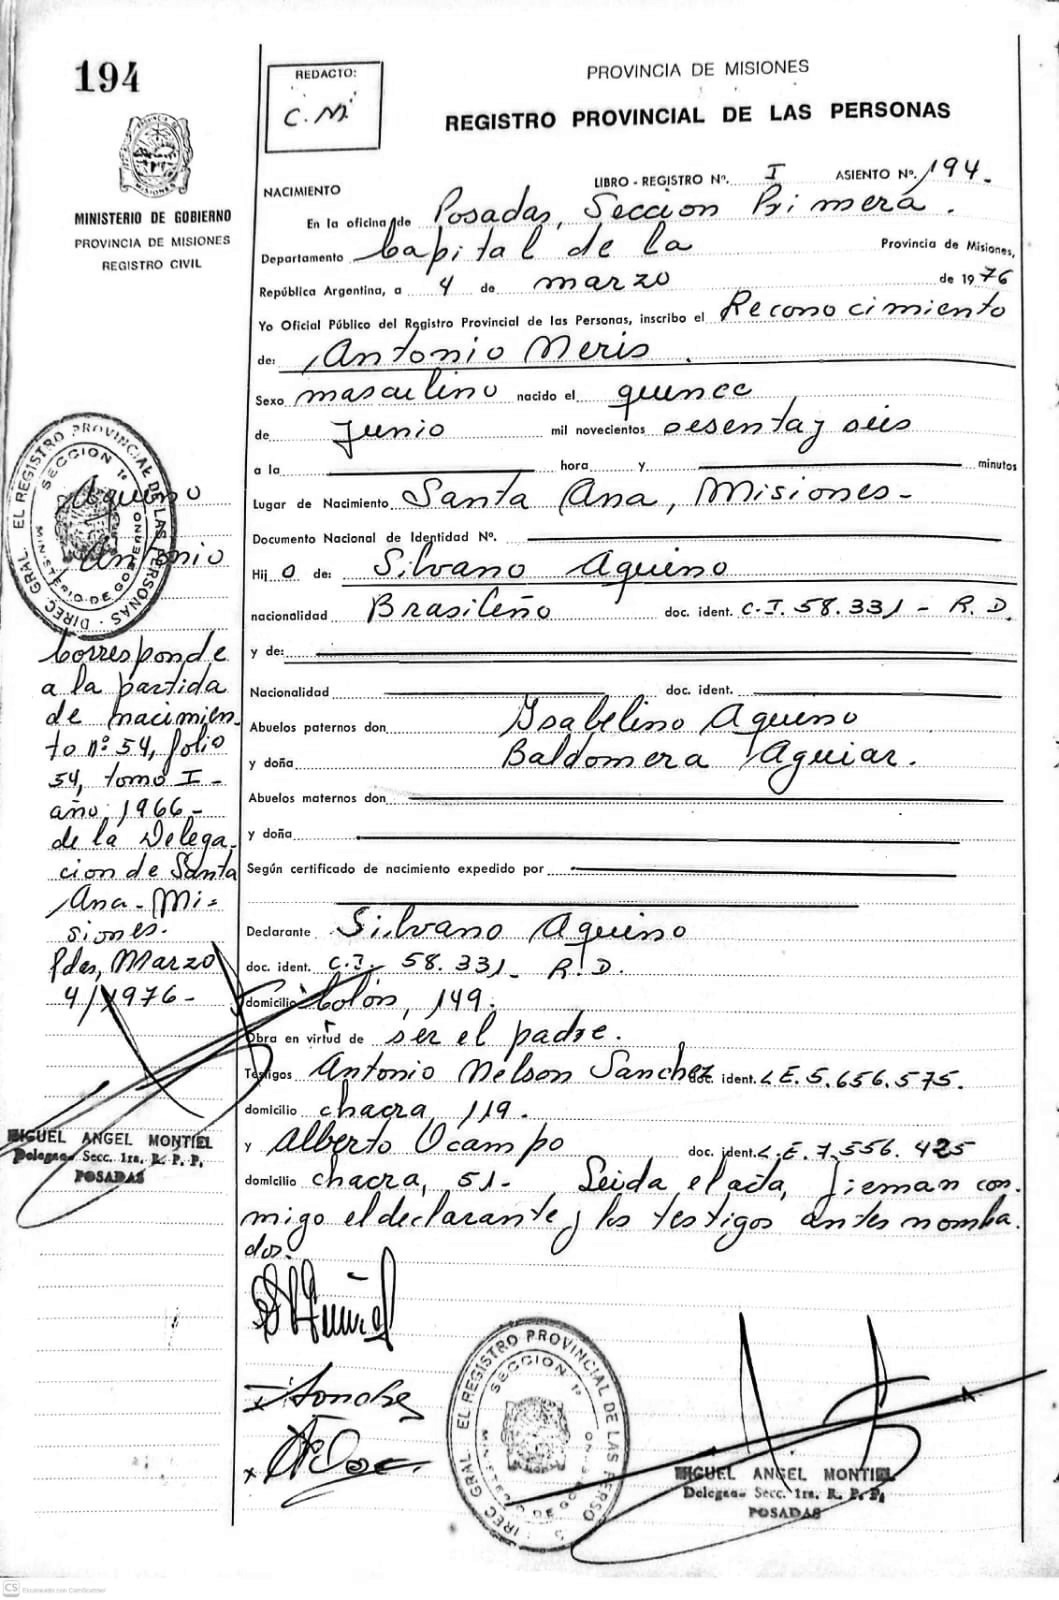 194
REDACTO:
C. M.
PROVINCIA DE MISIONES
REGISTRO PROVINCIAL DE LAS PERSONAS
MISIONES
MINISTERIO DE GOBIERNO
PROVINCIA DE MISIONES
REGISTRO CIVIL
NACIMIENTO LIBRO - REGISTRO Nº. I ASIENTO Nº. 194.
En la oficina de Posadas, Sección Primera.
Departamento Capital de la Provincia de Misiones,
República Argentina, a 4 de marzo de 1976
Yo Oficial Público del Registro Provincial de las Personas, inscribo el Reconocimiento
de: Antonio Neris.
Sexo masculino nacido el quince
de junio mil novecientos sesenta y seis
a la hora y minutos
Lugar de Nacimiento Santa Ana, Misiones-
Documento Nacional de Identidad Nº.
Hij o de: Silvano Aquino
nacionalidad Brasileño doc. ident. C.I. 58.331 - R.D.
y de:
Nacionalidad doc. ident.
Abuelos paternos don Ysabelino Aquino
y doña Baldomera Aguiar.
Abuelos maternos don
y doña
Según certificado de nacimiento expedido por
Declarante Silvano Aquino
doc. ident. C.I. 58.331- R.D.
domicilio Colón, 149.
Obra en virtud de ser el padre.
Testigos Antonio Nelson Sanchez doc. ident. L.E. 5.656.575.
domicilio chacra 119.
y Alberto Ocampo doc. ident. L.E. 7.556.425
domicilio chacra, 51- Leida el acta, firman con-
migo el declarante y los testigos antes nombra-
dos.
DIREC. GRAL. EL REGISTRO PROVINCIAL DE LAS PERSONAS
SECCION 1º
MINISTERIO DE GOBIERNO
Aquino
Antonio
Corresponde
a la partida
de nacimien-
to nº 54, folio
54, tomo I -
año 1966-
de la Delega-
cion de Santa
Ana - Mi-
siones.
Pdas, Marzo
4/1976-
MIGUEL ANGEL MONTIEL
Delegado Secc. 1ra. R. P. P.
POSADAS
DIREC. GRAL. EL REGISTRO PROVINCIAL DE LAS PERSO
SECCION 1º
MINISTERIO DE GOBIERNO
MIGUEL ANGEL MONTIEL
Delegado Secc. 1ra. R. P. P.
POSADAS
CS Escaneado con CamScanner